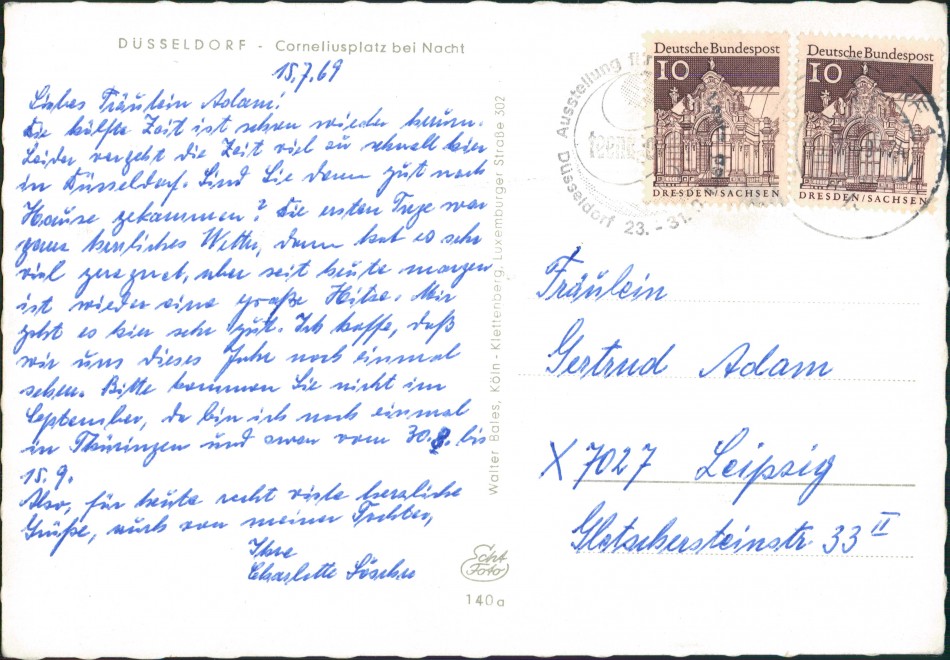 DÜSSELDORF - Corneliusplatz bei Nacht
15.7.69
Liebes Fräulein Adam!
Die hälfte Zeit ist schon wieder herum.
Leider vergeht die Zeit viel zu schnell hier
in Düsseldorf. Sind Sie denn gut nach
Hause gekommen? Die ersten Tage war
ganz herrliches Wetter, dann hat es sehr
viel geregnet, aber seit heute morgen
ist wieder eine große Hitze. Mir
geht es hier sehr gut. Ich hoffe, daß
wir uns dieses Jahr noch einmal
sehen. Bitte kommen Sie nicht im
September, da bin ich noch einmal
in Thüringen und zwar vom 30.8. bis
15.9.
Also, für heute recht viele herzliche
Grüße, auch von meiner Tochter,
Ihre
Charlotte
Walter Bales, Köln - Klettenberg, Luxemburger Straße 302
Echt
Foto
140a
Deutsche Bundespost
10
DRESDEN/SACHSEN
Deutsche Bundespost
10
DRESDEN/SACHSEN
Düsseldorf 23. - 31. Ausstellung für
Fräulein
Gertrud Adam
X 7027 Leipzig
Gletschersteinstr. 33 II